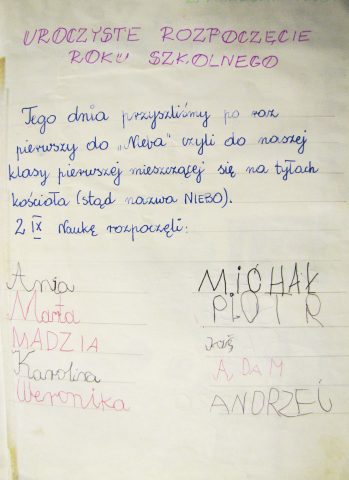 UROCZYSTE ROZPOCZĘCIE
ROKU SZKOLNEGO
Tego dnia przyszliśmy po raz
pierwszy do „Nieba” czyli do naszej
klasy pierwszej mieszczącej się na tyłach
kościoła (stąd nazwa NIEBO).
2 IX Naukę rozpoczęli:
Ania
Marta
MADZIA
Karolina
Weronika
MICHAŁ
PIOTR
ADAM
ANDRZEJ